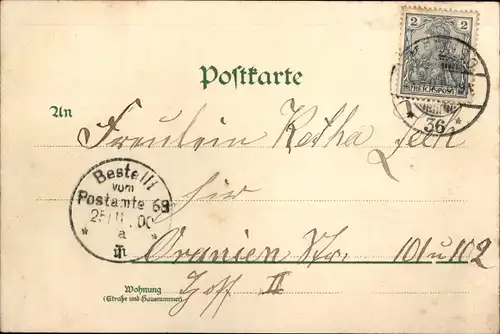 2 2
REICHSPOST
Postkarte
* 36 *
An Fräulein Käthe
Bestellt
vom
Postamte 68
25/11.00
* a *
hier
Oranien Str. 101 u 102
Wohnung
(Straße und Hausnummer)
Hoff II